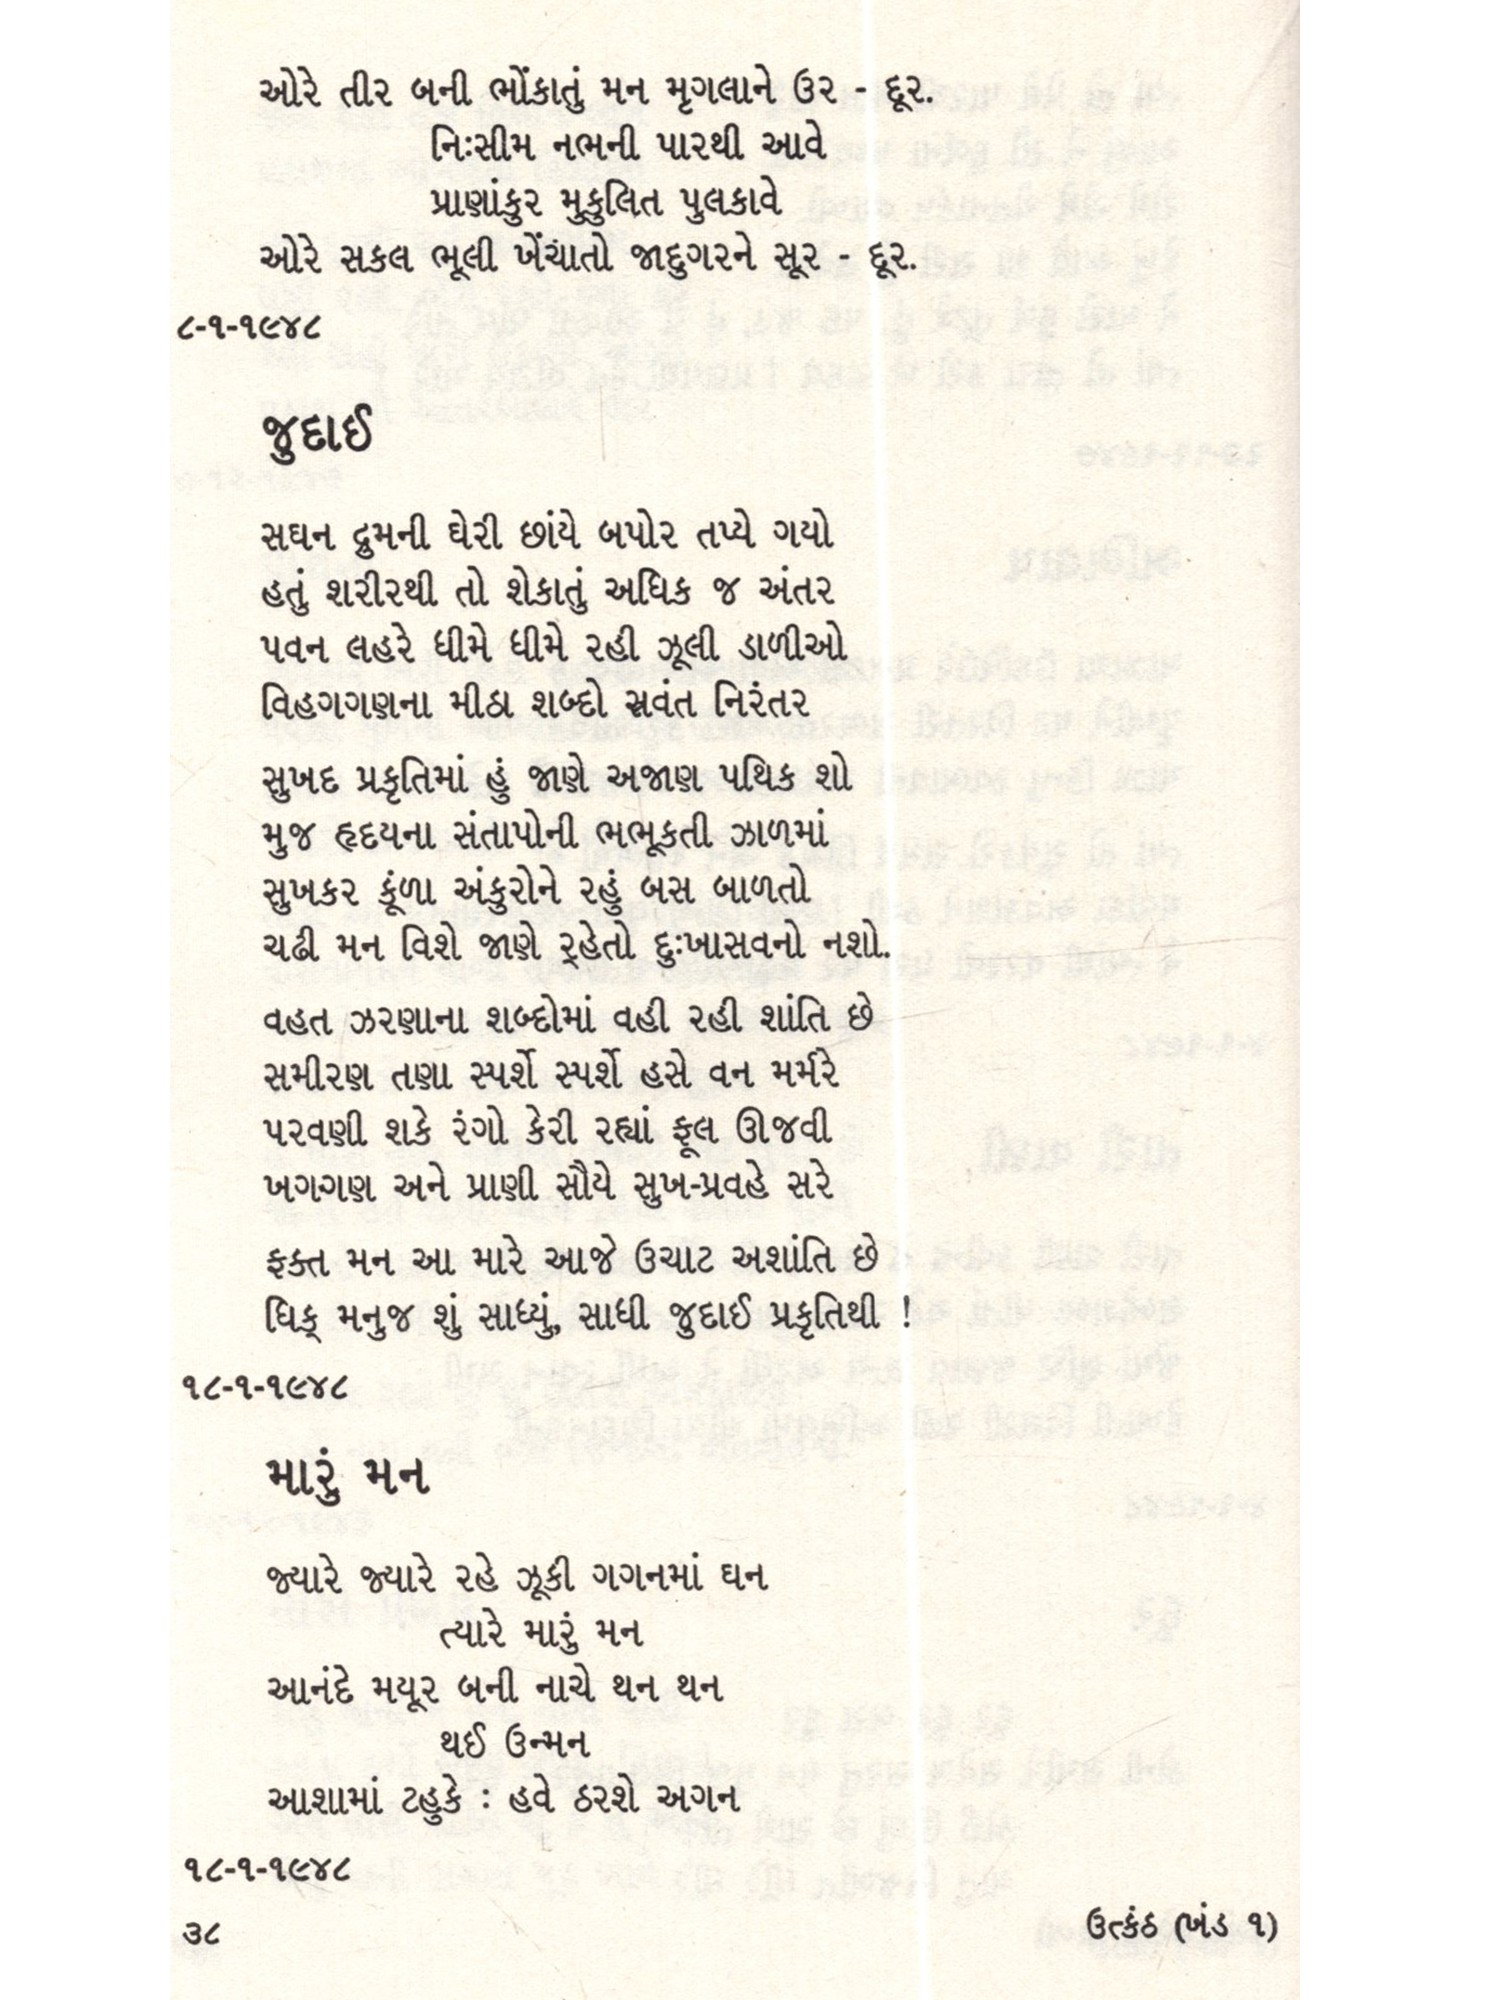 ઓરે તીર બની ભોંકાતું મન મૃગલાને ઉર - દૂર.
નિઃસીમ નભની પારથી આવે
પ્રાણાંકુર મુકુલિત પુલકાવે
ઓરે સકલ ભૂલી ખેંચાતો જાદુગરને સૂર - દૂર.
૮-૧-૧૯૪૮
જુદાઈ
સઘન દ્રુમની ઘેરી છાંયે બપોર તપ્યે ગયો
હતું શરીરથી તો શેકાતું અધિક જ અંતર
પવન લહરે ધીમે ધીમે રહી ઝૂલી ડાળીઓ
વિહગગણના મીઠા શબ્દો સ્રવંત નિરંતર
સુખદ પ્રકૃતિમાં હું જાણે અજાણ પથિક શો
મુજ હૃદયના સંતાપોની ભભૂકતી ઝાળમાં
સુખકર કૂંળા અંકુરોને રહું બસ બાળતો
ચઢી મન વિશે જાણે ર્‌હેતો દુઃખાસવનો નશો.
વહત ઝરણાના શબ્દોમાં વહી રહી શાંતિ છે
સમીરણ તણા સ્પર્શે સ્પર્શે હસે વન મર્મરે
પરવણી શકે રંગો કેરી રહ્યાં ફૂલ ઊજવી
ખગગણ અને પ્રાણી સૌયે સુખ-પ્રવહે સરે
ફક્ત મન આ મારે આજે ઉચાટ અશાંતિ છે
ધિક્ મનુજ શું સાધ્યું, સાધી જુદાઈ પ્રકૃતિથી !
૧૮-૧-૧૯૪૮
મારું મન
જ્યારે જ્યારે રહે ઝૂકી ગગનમાં ઘન
ત્યારે મારું મન
આનંદે મયૂર બની નાચે થન થન
થઈ ઉન્મન
આશામાં ટહુકે : હવે ઠરશે અગન
૧૮-૧-૧૯૪૮
૩૮ ઉત્કંઠ (ખંડ ૧)